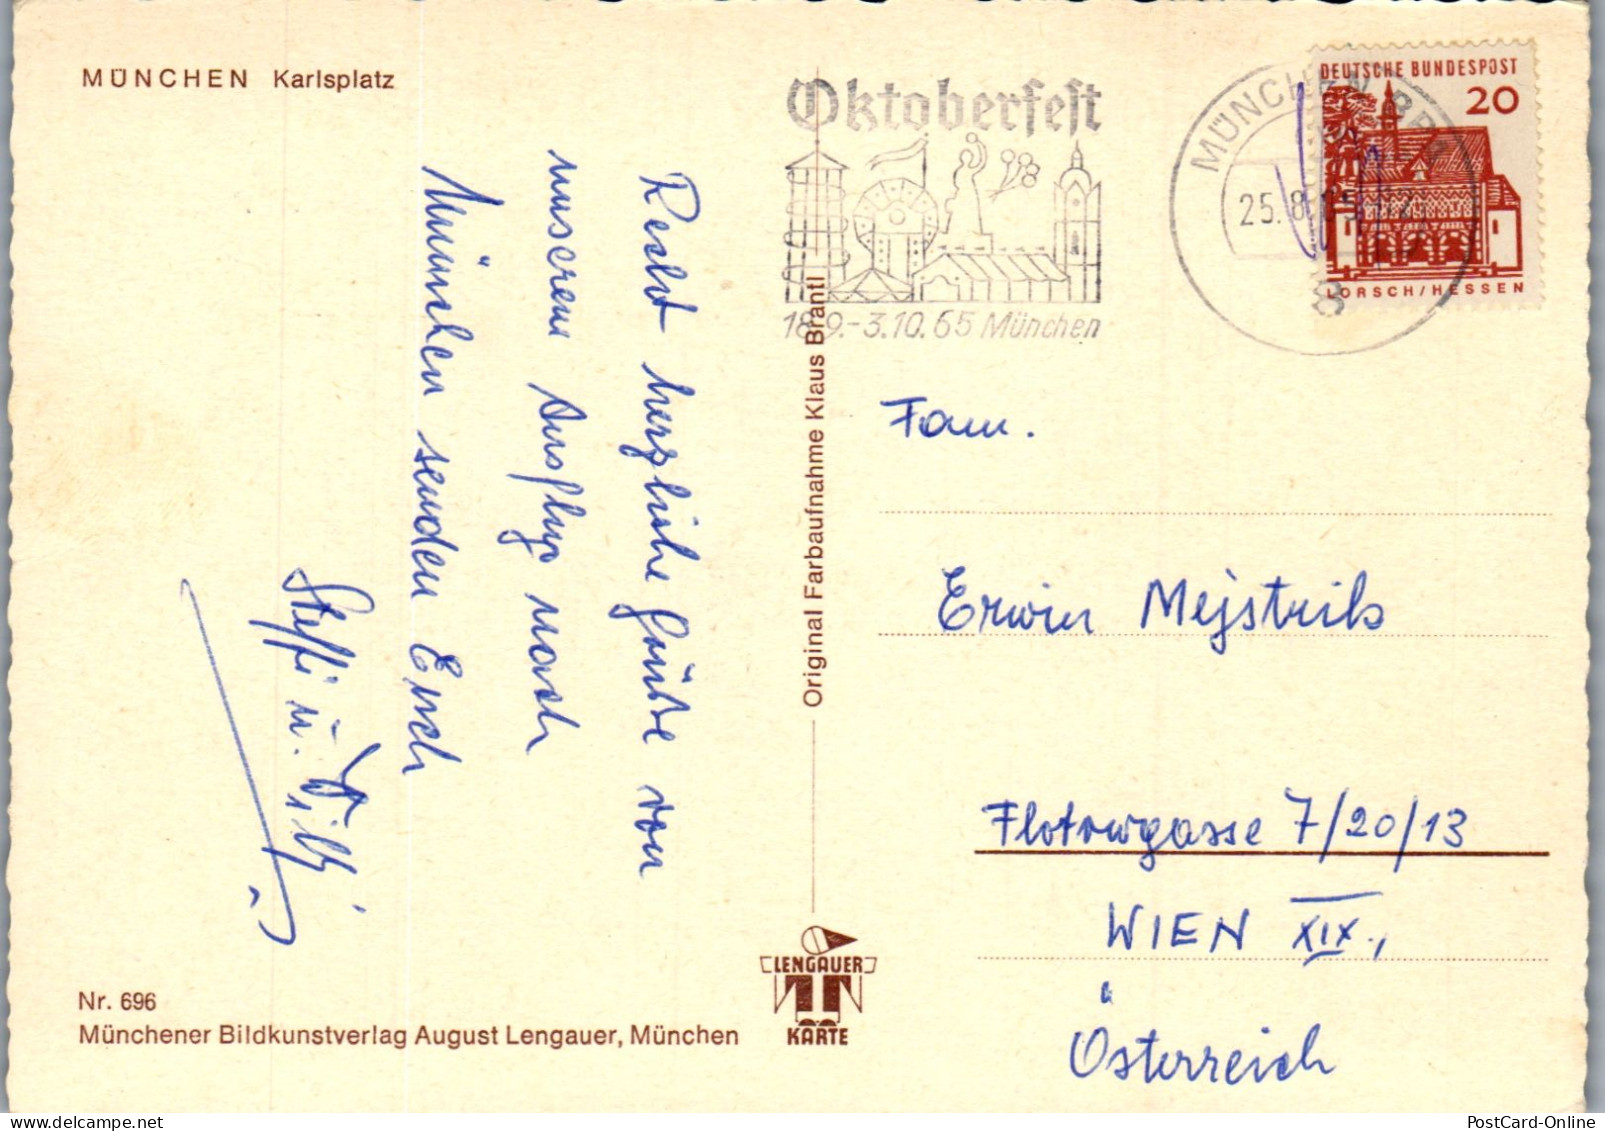 MÜNCHEN Karlsplatz
Recht herzliche Grüße von
unserem Ausflug nach
München senden Euch
Steffi u. Willy
Nr. 696
Münchener Bildkunstverlag August Lengauer, München
Original Farbaufnahme Klaus Brantl
LENGAUER
KARTE
Oktoberfest
18.9.-3.10.65 München
MÜNCHEN BPA
25.8.65
8
DEUTSCHE BUNDESPOST
20
LORSCH/HESSEN
Fam.
Erwin Mejstrik
Flotowgasse 7/20/13
WIEN XIX.,
Österreich
PostCard-Online